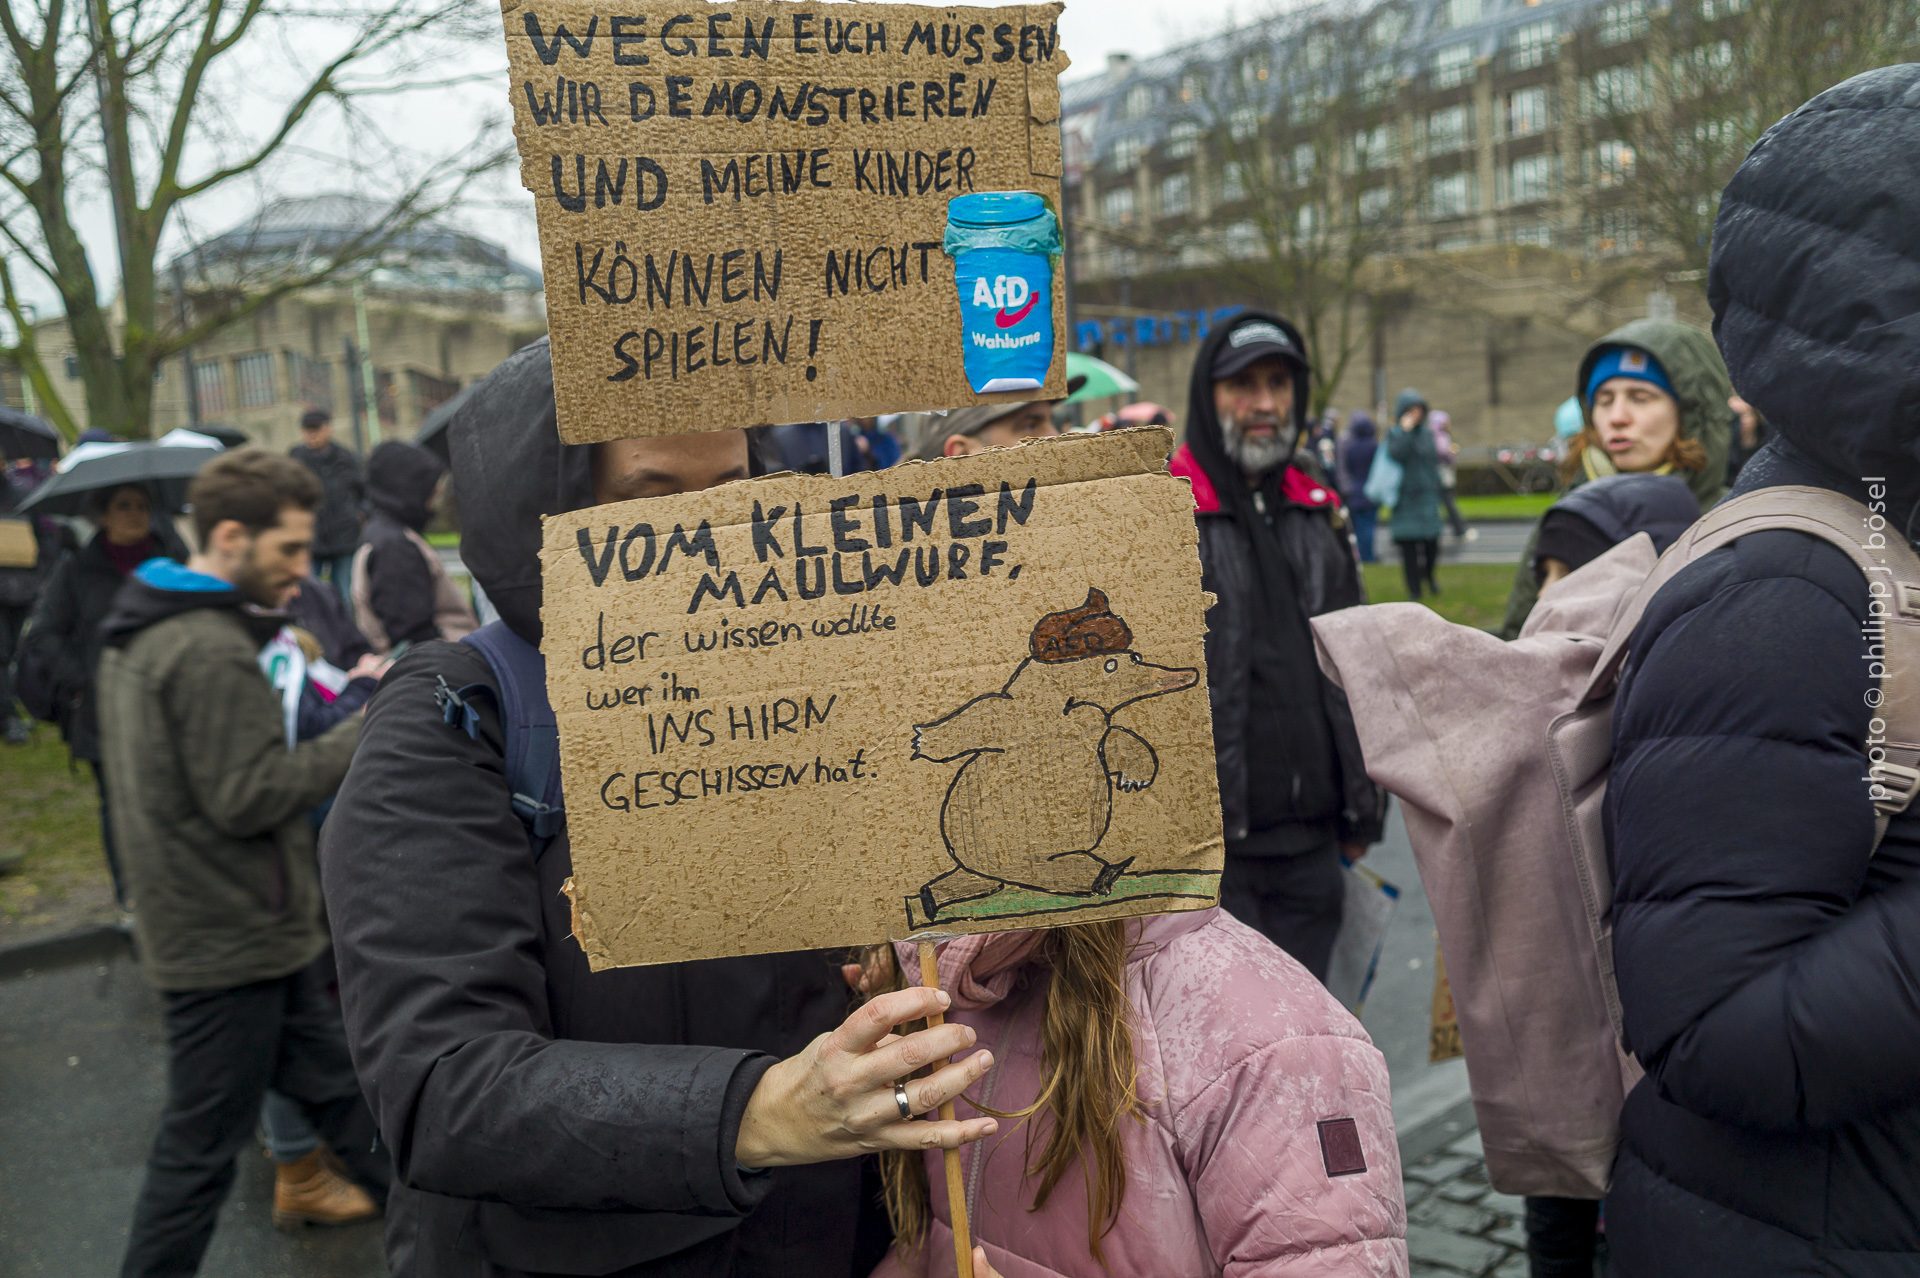 WEGEN EUCH MÜSSEN
WIR DEMONSTRIEREN
UND MEINE KINDER
KÖNNEN NICHT
SPIELEN!
AfD
Wahlurne
VOM KLEINEN
MAULWURF,
der wissen wollte
wer ihn
INS HIRN
GESCHISSEN hat.
AFD
photo © philipp j. bösel